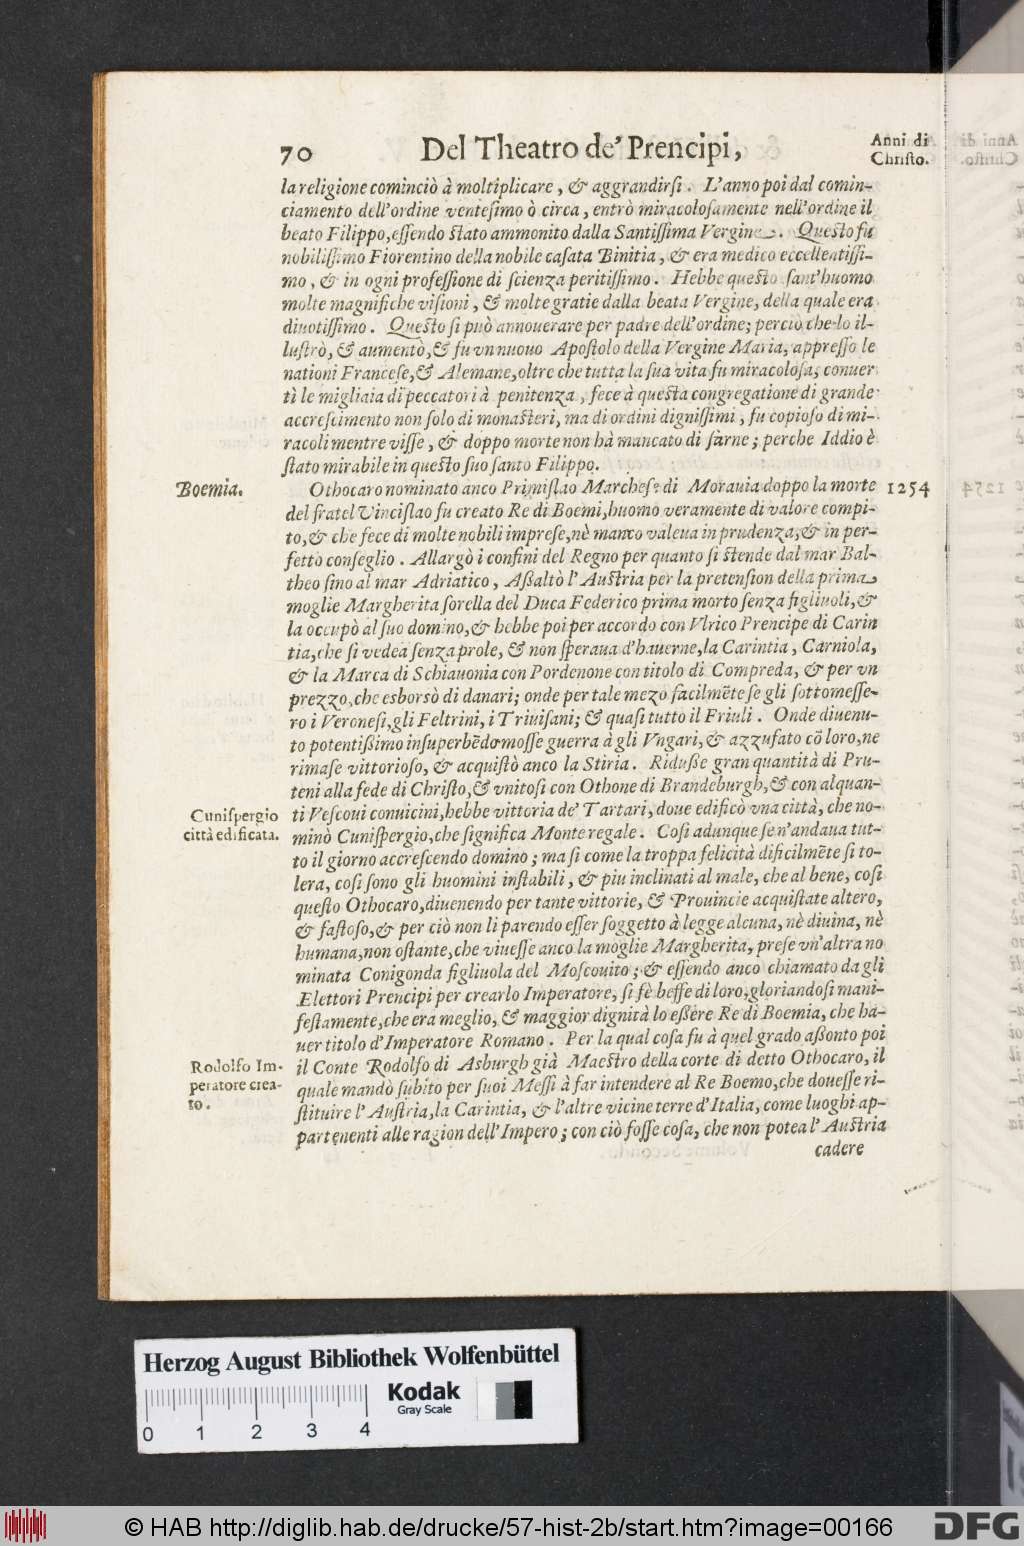 70 Del Theatro de' Prencipi, Anni di Christo.
la religione cominciò à moltiplicare, & aggrandirſi. L'anno poi dal comin-
ciamento dell'ordine venteſimo ò circa, entrò miracoloſamente nell'ordine il
beato Filippo, eſſendo ſtato ammonito dalla Santiſſima Vergine. Queſto fu
nobiliſſimo Fiorentino della nobile caſata Binitia, & era medico eccellentiſſi-
mo, & in ogni profeſſione di ſcienza peritiſſimo. Hebbe queſto ſant'huomo
molte magnifiche viſioni, & molte gratie dalla beata Vergine, della quale era
diuotiſſimo. Queſto ſi può annouerare per padre dell'ordine; perciò che lo il-
luſtrò, & aumentò, & fu vn nuouo Apoſtolo della Vergine Maria, appreſſo le
nationi Franceſe, & Alemane, oltre che tutta la ſua vita fu miracoloſa; conuer
tì le migliaia di peccatori à penitenza, fece à queſta congregatione di grande
accreſcimento non ſolo di monaſteri, ma di ordini digniſſimi, fu copioſo di mi-
racoli mentre viſſe, & doppo morte non hà mancato di farne; perche Iddio è
ſtato mirabile in queſto ſuo ſanto Filippo.
Boemia. Othocaro nominato anco Primiſlao Marcheſe di Morauia doppo la morte 1254
del fratel Vinciſlao fu creato Re di Boemi, huomo veramente di valore compi-
to, & che fece di molte nobili impreſe, nè manco valeua in prudenza, & in per-
fetto conſeglio. Allargò i confini del Regno per quanto ſi ſtende dal mar Bal-
theo ſino al mar Adriatico, Aßaltò l'Auſtria per la pretenſion della prima
moglie Margherita ſorella del Duca Federico prima morto ſenza figliuoli, &
la occupò al ſuo domino, & hebbe poi per accordo con Vlrico Prencipe di Carin
tia, che ſi vedea ſenza prole, & non ſperaua d'hauerne, la Carintia, Carniola,
& la Marca di Schiauonia con Pordenone con titolo di Compreda, & per vn
prezzo, che esborsò di danari; onde per tale mezo facilmēte ſe gli ſottomeſſe-
ro i Veroneſi, gli Feltrini, i Triuiſani; & quaſi tutto il Friuli. Onde diuenu-
to potentißimo inſuperbēdo moſſe guerra à gli Vngari, & azzufato cō loro, ne
rimaſe vittorioſo, & acquiſtò anco la Stiria. Riduße gran quantità di Pru-
teni alla fede di Chriſto, & vnitoſi con Othone di Brandeburgh, & con alquan-
Cuniſpergio ti Veſcoui conuicini, hebbe vittoria de' Tartari, doue edificò vna città, che no-
città edificata. minò Cuniſpergio, che ſignifica Monte regale. Coſi adunque ſe n'andaua tut-
to il giorno accreſcendo domino; ma ſi come la troppa felicità dificilmēte ſi to-
lera, coſi ſono gli huomini inſtabili, & piu inclinati al male, che al bene, coſi
queſto Othocaro, diuenendo per tante vittorie, & Prouincie acquiſtate altero,
& faſtoſo, & per ciò non li parendo eſſer ſoggetto à legge alcuna, nè diuina, nè
humana, non oſtante, che viueſſe anco la moglie Margherita, preſe vn'altra no
minata Conigonda figliuola del Moſcouito; & eſſendo anco chiamato da gli
Elettori Prencipi per crearlo Imperatore, ſi fè beffe di loro, gloriandoſi mani-
feſtamente, che era meglio, & maggior dignità lo eßere Re di Boemia, che ha-
uer titolo d'Imperatore Romano. Per la qual coſa fu à quel grado aßonto poi
Rodolfo Im- il Conte Rodolfo di Asburgh già Maeſtro della corte di detto Othocaro, il
peratore crea- quale mandò ſubito per ſuoi Meſſi à far intendere al Re Boemo, che doueſſe ri-
to. ſtituire l'Auſtria, la Carintia, & l'altre vicine terre d'Italia, come luoghi ap-
partenenti alle ragion dell'Impero; con ciò foſſe coſa, che non potea l'Auſtria
cadere
Herzog August Bibliothek Wolfenbüttel
Kodak
Gray Scale
0 1 2 3 4
© HAB http://diglib.hab.de/drucke/57-hist-2b/start.htm?image=00166 DFG